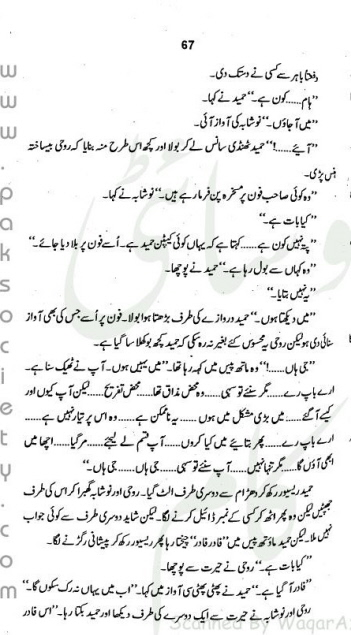 67
دفعتاً باہر سے کسی نے دستک دی۔
”ہام......کون ہے۔“ حمید نے کہا۔
”میں آجاؤں۔“ نوشابہ کی آواز آئی۔
”آیئے......!“ حمید ٹھنڈی سانس لے کر بولا اور کچھ اس طرح منہ بنایا کہ روحی بیساختہ
ہنس پڑی۔
”وہ کوئی صاحب فون پر مسخرہ پن فرما رہے ہیں۔“ نوشابہ نے کہا۔
”کیا بات ہے۔“
”پتہ نہیں کون ہے......کہتا ہے کہ یہاں کوئی کیپٹن حمید ہے۔ اُسے فون پر بلا دیا جائے۔“
”وہ کہاں سے بول رہا ہے۔“ حمید نے پوچھا۔
”یہ نہیں بتایا۔“
”میں دیکھتا ہوں۔“ حمید دروازے کی طرف بڑھتا ہوا بولا۔ فون پر اُسے جس کی بھی آواز
سنائی دی ہو لیکن روحی یہ محسوس کئے بغیر نہ رہ سکی کہ حمید کچھ بوکھلا سا گیا ہے۔
”جی ہاں......!“ وہ ماتھ پیس میں کہہ رہا تھا۔ ”میں یہیں ہوں۔ آپ نے ٹھیک سنا ہے۔
ارے باپ رے......مگر سنئے تو سہی......وہ محض مذاق تھا......محض تفریح......لیکن آپ کیوں اور
کیسے آگئے......میں بڑی مشکل میں ہوں......یہ ناممکن ہے......وہ اس پر تیار نہیں ہے......
ارے باپ رے......پھر بتایئے میں کیا کروں......آپ قسم لے لیجئے......مرگیا......اچھا میں
ابھی آؤں گا......مگر تنہا نہیں......آپ سنئے تو سہی......جی ہاں......جی ہاں۔“
حمید ریسیور رکھ کر دھڑام سے دوسری طرف الٹ گیا۔ روحی اور نوشابہ گھبرا کر اس کی طرف
جھپٹیں لیکن وہ پھر اٹھ کر کسی کے نمبر ڈائیل کرنے لگا۔ لیکن شاید دوسری طرف سے کوئی جواب
نہیں ملا۔ لیکن حمید ماؤتھ پیس میں ”فادر فادر“ چیختا رہا پھر ریسیور رکھ کر پیشانی رگڑنے لگا۔
”کیا بات ہے۔“ روحی نے حیرت سے پوچھا۔
”فادر آگیا ہے۔“ حمید نے پھٹی پھٹی سی آواز میں کہا۔ ”اب میں یہاں نہ رک سکوں گا۔“
روحی اور نوشابہ نے حیرت سے ایک دوسرے کی طرف دیکھا اور حمید بکتا رہا۔ ”اس فادر
www.paksociety.com
Scanned By WaqarA